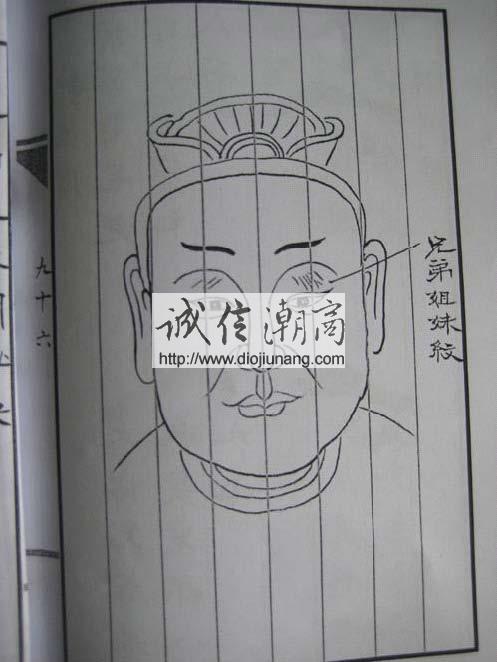 兄弟姐妹紋
诚信潮商
http://www.diojiunang.com
九十六